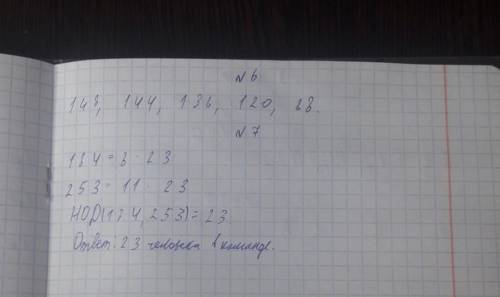 №6
148, 144, 136, 120, 88.
№7
184 = 8 · 23
253 = 11 · 23
НОД(184, 253) = 23
Ответ: 23 человека в команде.